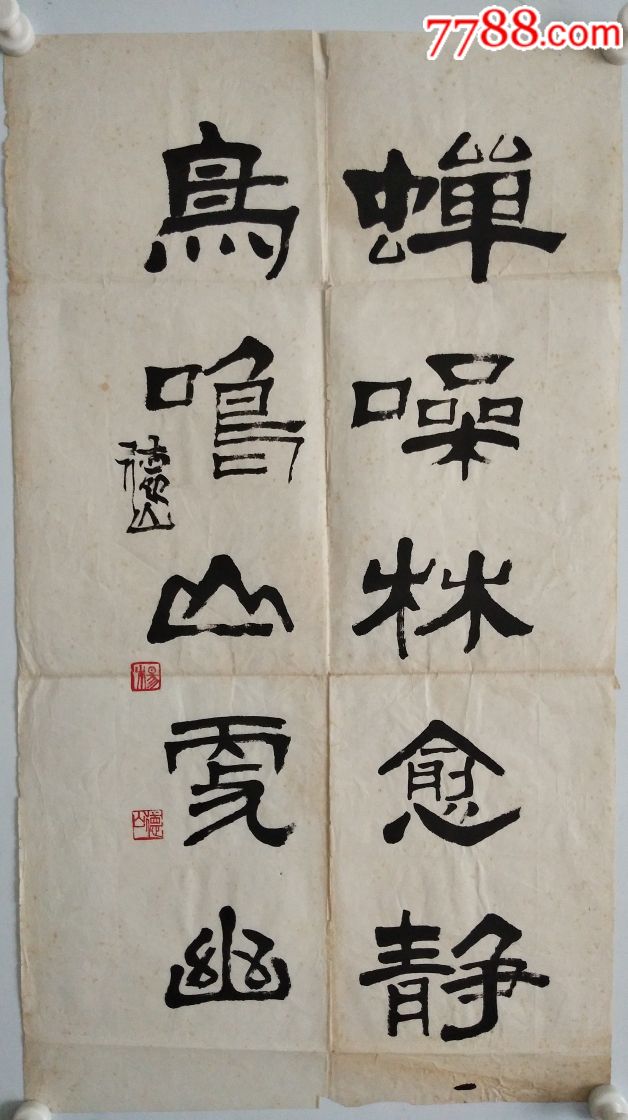 7788.com
蝉噪林愈静
鳥鳴山更幽
德山
楊
德山